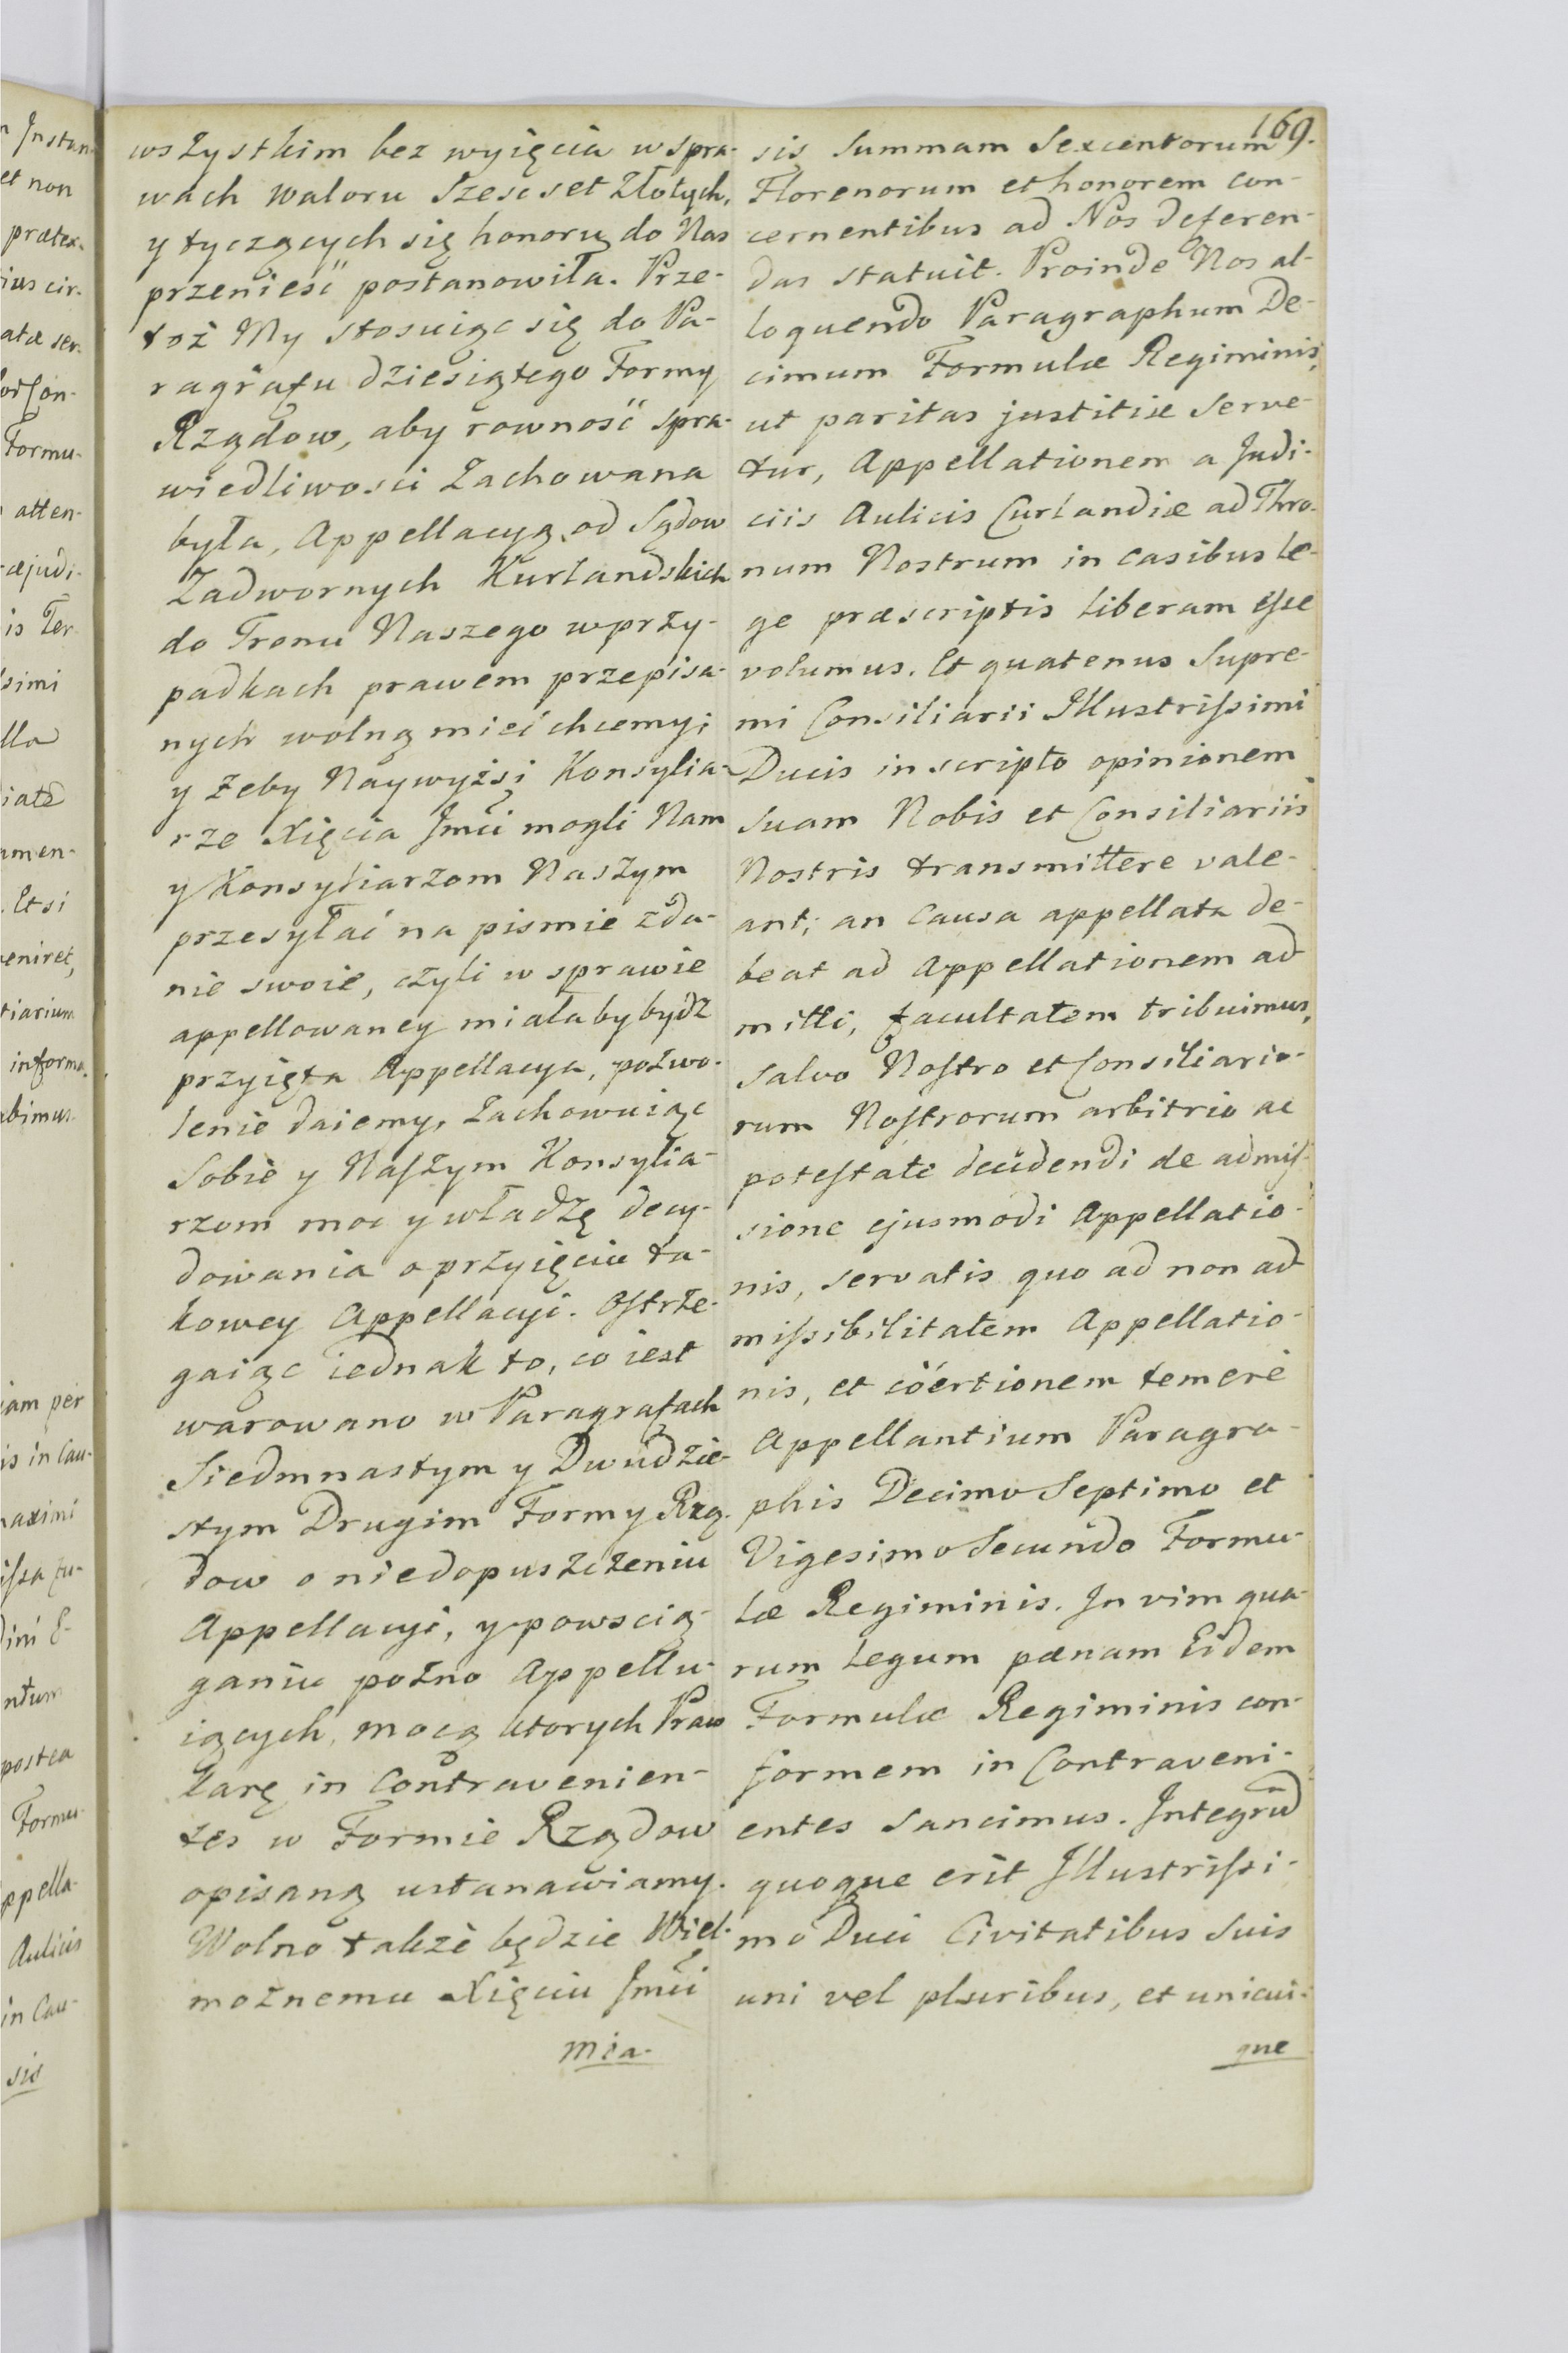 169.
wszystkim bez wyięcia w spra-
wach waloru Szescset Złotych,
y tyczących się honoru, do Nas
przenieść postanowiła. Prze-
toż My stosuiąc się do Pa-
ragrafu dziesiątego Formy
Rządow, aby rowność spra-
wiedliwosci zachowana
była, Appellacyą od Sądow
Zadwornych Kurlandskich
do Tronu Naszego w przy-
padkach prawem przepisa-
nych wolną mieć chcemy;
y żeby Naywyżsi Konsylia-
rze Xięcia Jmci mogli Nam
y Konsyliarzom Naszym
przesyłać na pismie zda-
nie swoie, czyli w sprawie
appellowaney miałaby bydz
przyięta Appellacya, pozwo-
lenie daiemy, zachowuiąc
Sobie y Naszym Konsylia-
rzom moc y władzę decy-
dowania o przyięciu ta-
kowey Appellacyi. Ostrze-
gaiąc iednak to, co iest
warowano w Paragrafach
Siedmnastym y Dwudzie-
stym Drugim Formy Rzą-
dow o niedopuszczeniu
Appellacyi, y powscią-
ganiu pozno Appellu-
iących, mocą ktorych Praw
karę in Contravenien-
tes w Formie Rządow
opisaną ustanawiamy.
Wolno także będzie Wiel-
możnemu Xięciu Jmci
mia-
sis Summam Sexcentorum
Florenorum et honorem con-
cernentibus ad Nos deferen-
das statuit. Proinde Nos al-
loquendo Paragraphum De-
cimum Formulæ Regiminis,
ut paritas justitiæ serve-
tur, Appellationem a Judi-
ciis Aulicis Curlandiæ ad Thro-
num Nostrum in casibus le-
ge præscriptis liberam esse
volumus. Et quatenus Supre-
mi Consiliarii Illustrissimi
Ducis in scripto opinionem
suam Nobis et Consiliariis
Nostris transmittere vale-
ant; an Causa appellata de-
beat ad Appellationem ad
mitti, facultatem tribuimus,
Salvo Nostro et Consiliario-
rum Nostrorum arbitrio ac
potestate decidendi de admis-
sione ejusmodi Appellatio-
nis, servatis quo ad non ad
missibilitatem Appellatio-
nis, et coërtionem temerè
Appellantium Paragra-
phis Decimo Septimo et
Vigesimo Secundo Formu-
læ Regiminis. In vim qua-
rum Legum pœnam Eidem
Formulæ Regiminis con-
formem in Contraveni-
entes sancimus. Integrũ
quoque erit Illustrissi-
mo Duci Civitatibus suis
uni vel pluribus, et unicui-
que